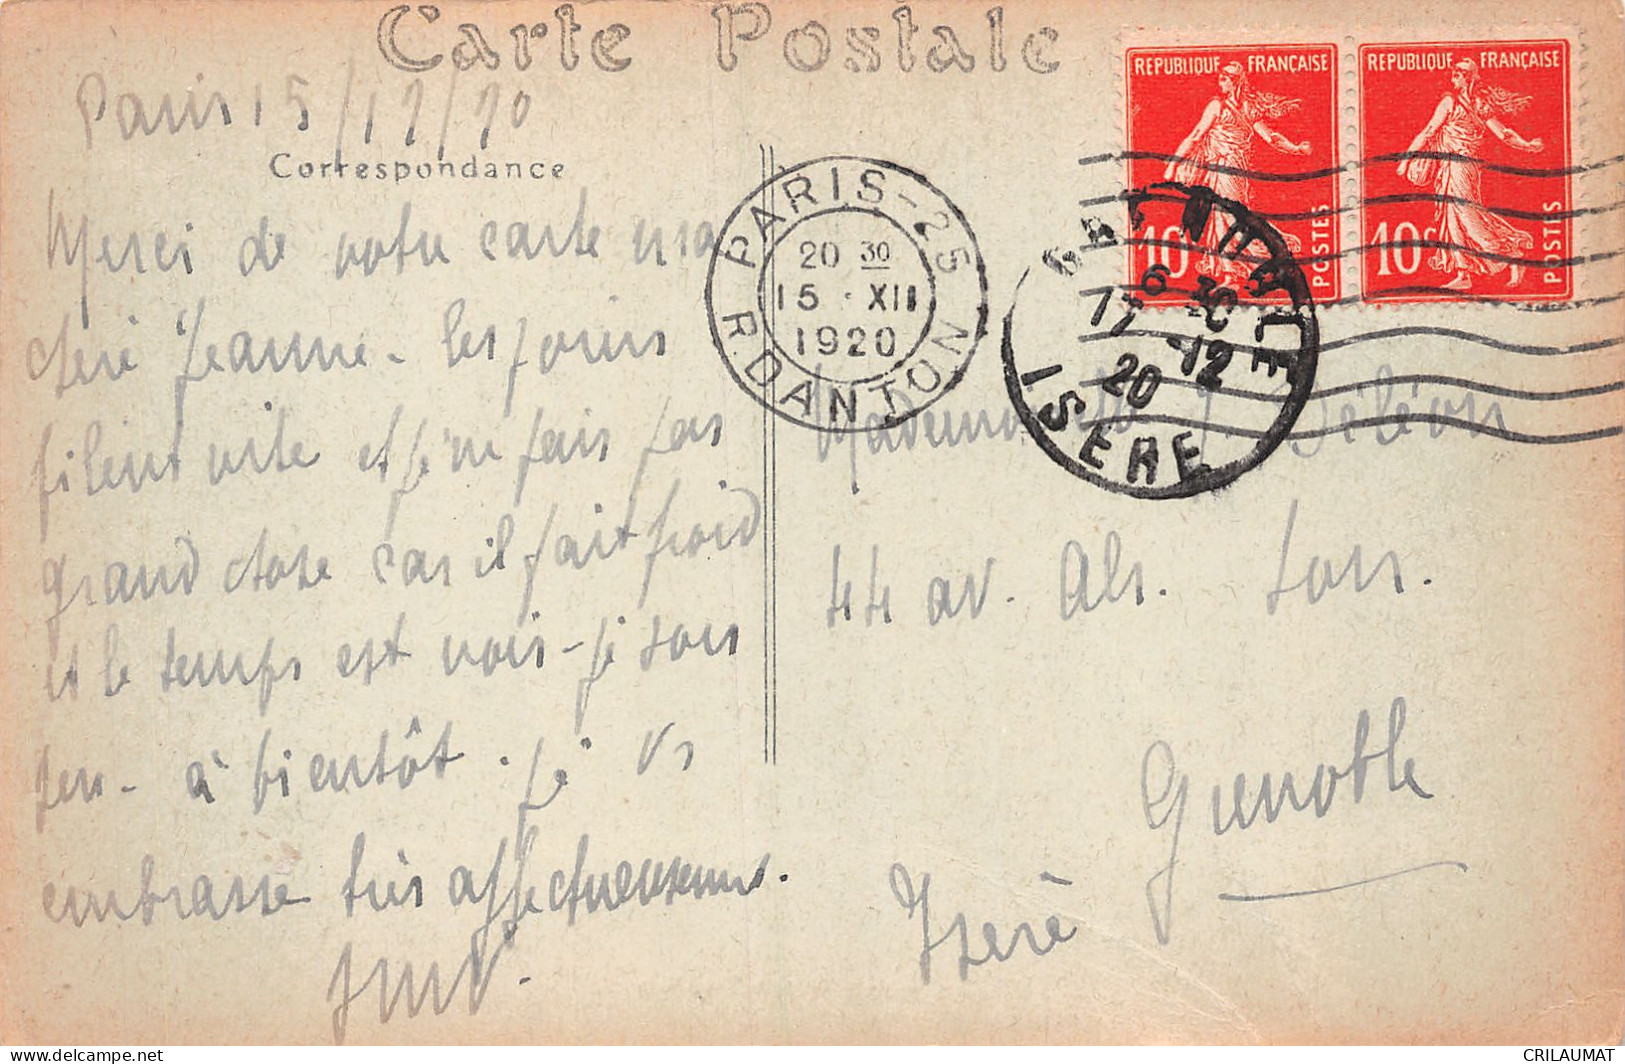 Carte Postale
Paris 15/12/20
Correspondance
Merci de votre carte ma
chère Jeanne - les jours
filent vite et je ne fais pas
grand chose car il fait froid
et le temps est noir - je
à bientôt. je vs
embrasse très affectueusement.
REPUBLIQUE FRANÇAISE
10c POSTES
REPUBLIQUE FRANÇAISE
10c POSTES
PARIS-25
20 30
15 · XII
1920
R. DANTON
GRENOBLE
6 30
17 -12
20
ISERE
Mademoiselle J.
44 av. Als. Lorr.
Grenoble
Isère
delcampe.net
CRILAUMAT